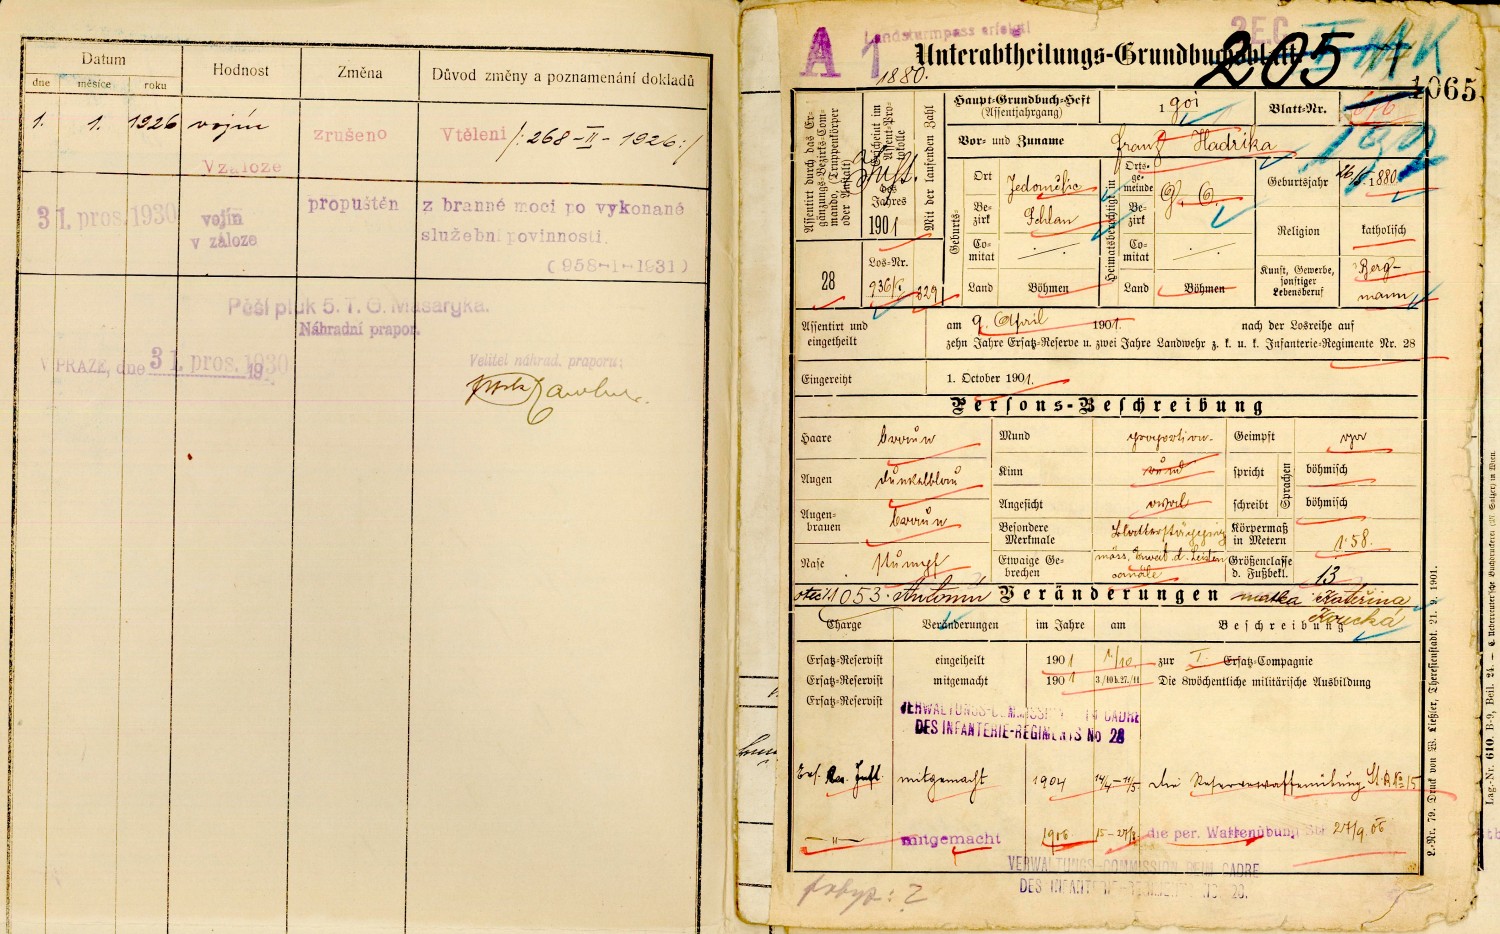 Datum
Hodnost
Změna
Důvod změny a poznamenání dokladů
dne
měsíce
roku
1.
1.
1926
vojín
V záloze
zrušeno
Vtělení /: 268-II- 1926:/
31. pros. 1930
vojín
v záloze
propuštěn
z branné moci po vykonané
služební povinnosti.
(958-I-1931)
Pěší pluk 5. T. G. Masaryka.
Náhradní prapor.
V PRAZE, dne 31. pros. 1930
19
Velitel náhrad. praporu:
A 1
Landsturmpass erfolgt!
Unterabtheilungs-Grundbuchsblatt
205
1880.
1065
Assentirt durch das Ergänzungs-Bezirks-Commando (Truppenkörper oder Anstalt)
28
Erscheint im Assent-Protokolle
des
Jahres
1901
Los-Nr.
936/
Mit der laufenden Zahl
829
Haupt-Grundbuch-Heft
(Assentjahrgang)
1901
Blatt-Nr.
192
Vor- und Zuname
Franz Hadrika
Geburts-
Ort
Jedomělic
Bezirk
Schlan
Comitat
Land
Böhmen
Heimatsberechtigt in
Ortsgemeinde
G. O.
Bezirk
Comitat
Land
Böhmen
Geburtsjahr
1880.
Religion
katholisch
Kunst, Gewerbe,
sonstiger
Lebensberuf
Bergmann
Assentirt und
eingetheilt
am 9. April 1901.
nach der Losreihe auf
zehn Jahre Ersatz-Reserve u. zwei Jahre Landwehr z. k. u. k. Infanterie-Regimente Nr. 28
Eingereiht
1. October 1901.
Persons-Beschreibung
Haare
braun
Mund
proportion.
Geimpft
Augen
dunkelblau
Kinn
rund
spricht
böhmisch
Sprachen
Augenbrauen
braun
Angesicht
oval
schreibt
böhmisch
Besondere
Merkmale
Blatternärbig
Körpermaß
in Metern
1·58.
Nase
stumpf
Etwaige Gebrechen
Größenclasse
d. Fußbekl.
13
otec: 1053. Antonín
Veränderungen
matka Kateřina
Koucká
Charge
Veränderungen
im Jahre
am
Beschreibung
Ersatz-Reservist
eingetheilt
1901
1/10.
zur I. Ersatz-Compagnie
Ersatz-Reservist
mitgemacht
1901
3./10 b. 27./11
Die 8wöchentliche militärische Ausbildung
Ersatz-Reservist
VERWALTUNGS-COMMISSION CADRE
DES INFANTERIE-REGIMENTS No 28
Ers. Res. Inft.
mitgemacht
1904
14/4-11/5
die Reservewaffenübung St. B. No 15
mitgemacht
1906
15-27/9
die per. Waffenübung
27/9. 06
VERWALTUNGS-COMMISSION BEIM CADRE
DES INFANTERIE-REGIMENTS No. 28.
L.-Nr. 79. Druck von W. Ließler, Theresienstadt. 21. 2. 1901.
Lag.-Nr. 610. B-9, Beil. 24.